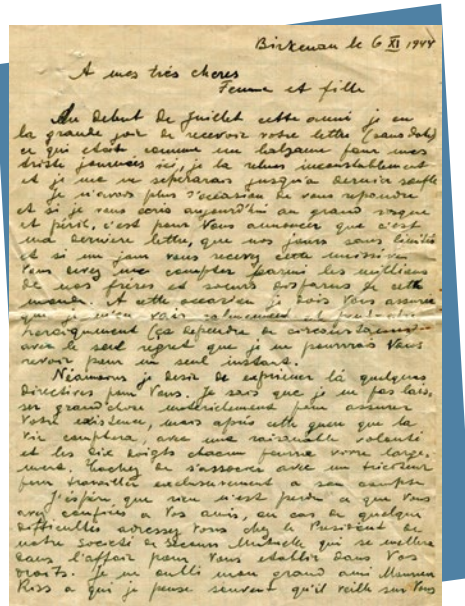 Birkenau le 6 XI 1944
A mes très cheres
Femme et fille
Au debut de Juillet cette année je eu
la grande joie de recevoir votre lettre (sans date)
ce qui était comme un balsame pour mes
triste journées ici, je la relus
et je me séparerais jusqu'a dernier soufle
Je n'avais plus l'occasion de vous repondre
et si je vous écris aujourd'hui au grand risque
et péril, c'est pour Vous annoncer que c'est
ma derniere lettre, que nos jours sont limités
et si un jour vous recevez cette missive
Vous me compter parmi les millions
de nos frères et soeurs disparus de cette
monde. A cette occasion je dois Vous assurer
que je m'en vais calmement et
heroiquement (ça dependra de
avec le seul regret que je ne pourrais Vous
revoir pour un seul instant.
Néamoins je desir de exprimer là quelques
directives pour Vous. Je sais que je ne pas lais,
ser grand'chose matérielement pour assurer
Votre existence, mais après cette guerre que la
vie comptera, avec une raisonable volonté
et les dix doigts chacun pourra vivre large,
ment. Tachez de s'associer avec un tricoteur
pour travailler exclusivement a son compte
J'espère que rien n'est perdu a que Vous
avez confiées a Vos amis, au cas de quelque
difficultés adressez Vous chez le President de
notre Société de Secours Mutuelle qui se mellera
dans l'affair pour Vous etablir dans Vos
droits. Je ne oulli mon grand ami
Riss a qui je pense souvent qu'il veille sur Vous